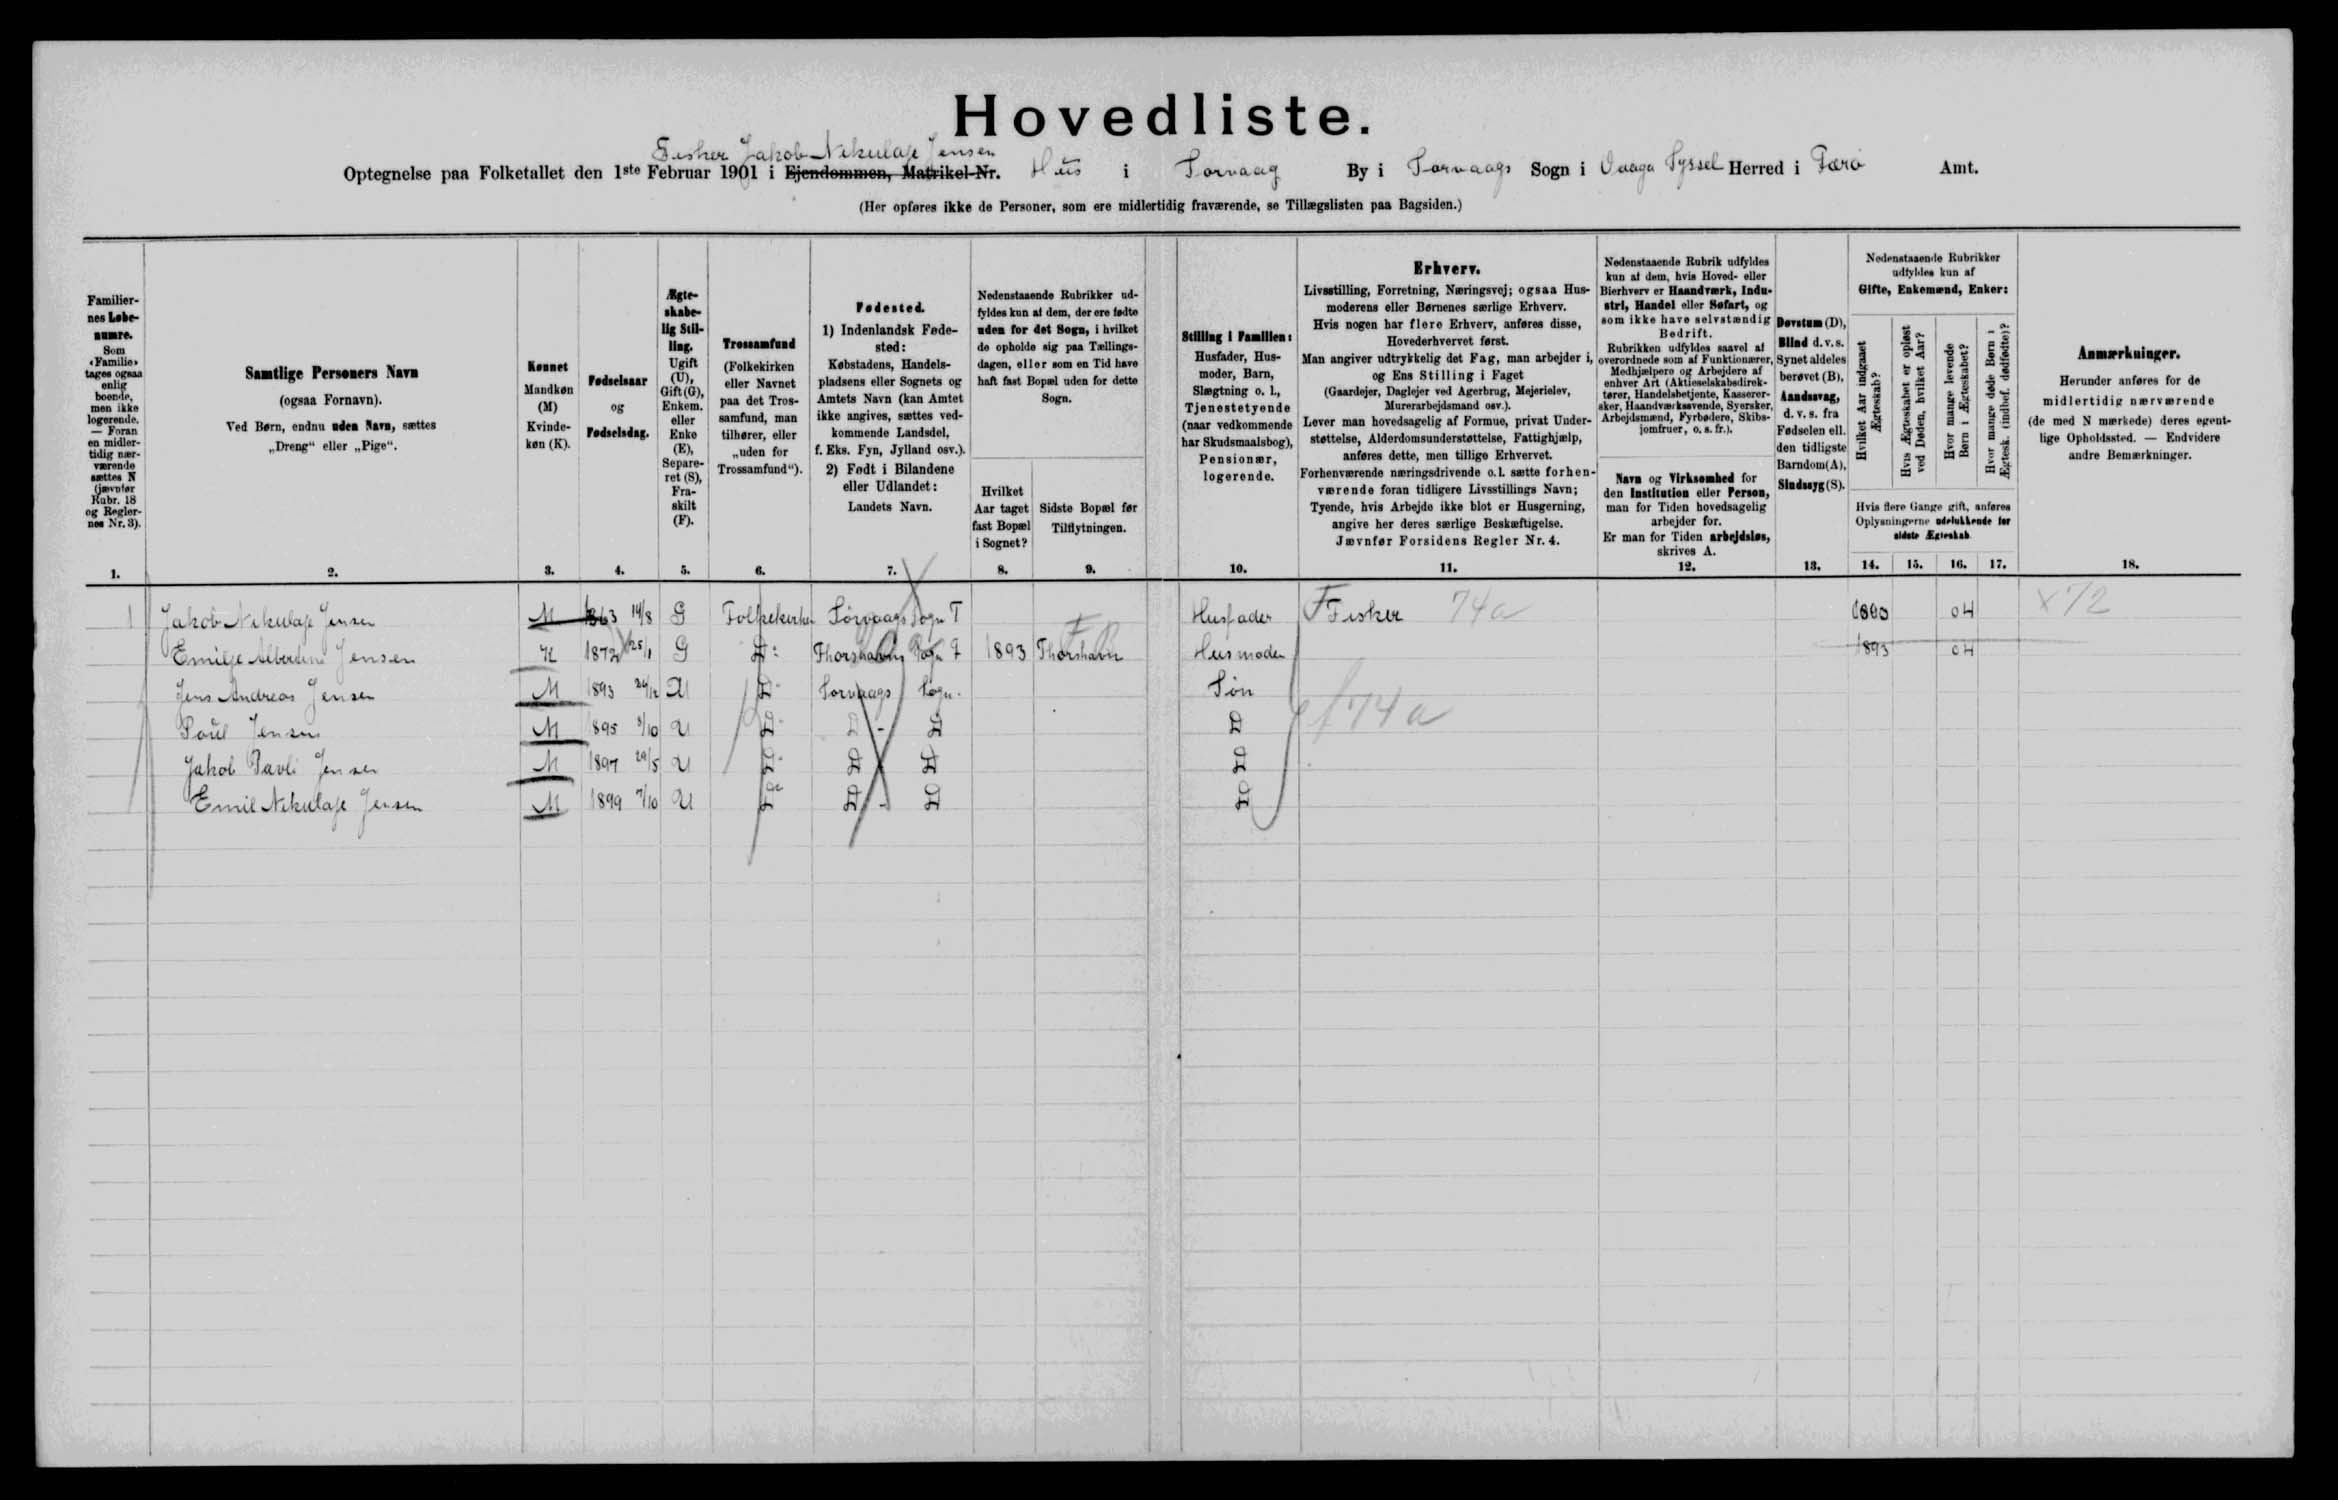 Hovedliste.
Fisker Jakob Nikulaje Jensen
Optegnelse paa Folketallet den 1ste Februar 1901 i Ejendommen, Matrikel-Nr. Hus i Sorvaag By i Sorvaags Sogn i Vaagø Syssel Herred i Færø Amt.
(Her opføres ikke de Personer, som ere midlertidig fraværende, se Tillægslisten paa Bagsiden.)
Familiernes Løbenumre.
Som «Familie» tages ogsaa enlig boende, men ikke logerende. — Foran en midlertidig nærværende sættes N (jævnfør Rubr. 18 og Reglernes Nr. 3).
1.
Samtlige Personers Navn
(ogsaa Fornavn).
Ved Børn, endnu uden Navn, sættes
„Dreng“ eller „Pige“.
2.
Kønnet
Mandkøn
(M)
Kvinde-
køn (K).
3.
Fødselsaar
og
Fødselsdag.
4.
Ægte-
skabe-
lig Stil-
ling.
Ugift
(U),
Gift (G),
Enkem.
eller
Enke
(E),
Separe-
ret (S),
Fra-
skilt
(F).
5.
Trossamfund
(Folkekirken
eller Navnet
paa det Tros-
samfund, man
tilhører, eller
„uden for
Trossamfund“).
6.
Fødested.
1) IndenlandskFøde-
sted:
Købstadens, Handels-
pladsens eller Sognets og
Amtets Navn (kan Amtet
ikke angives, sættes ved-
kommende Landsdel,
f. Eks. Fyn, Jylland osv.).
2) Født i Bilandene
eller Udlandet:
Landets Navn.
7.
Nedenstaaende Rubrikker ud-
fyldes kun af dem, der ere fødte
uden for det Sogn, i hvilket
de opholde sig paa Tællings-
dagen, eller som en Tid have
haft fast Bopæl uden for dette
Sogn.
Hvilket
Aar taget
fast Bopæl
i Sognet?
8.
Sidste Bopæl før
Tilflytningen.
9.
Stilling i Familien:
Husfader, Hus-
moder, Barn,
Slægtning o. l.,
Tjenestetyende
(naar vedkommende
har Skudsmaalsbog),
Pensionær,
logerende.
10.
Erhverv.
Livsstilling, Forretning, Næringsvej; ogsaa Hus-
moderens eller Børnenes særlige Erhverv.
Hvis nogen har flere Erhverv, anføres disse,
Hovederhvervet først.
Man angiver udtrykkelig det Fag, man arbejder i,
og Ens Stilling i Faget
(Gaardejer, Daglejer ved Agerbrug, Mejerielev,
Murerarbejdsmand osv.).
Lever man hovedsagelig af Formue, privat Under-
støttelse, Alderdomsunderstøttelse, Fattighjælp,
anføres dette, men tillige Erhvervet.
Forhenværende næringsdrivende o. l. sætte forhen-
værende foran tidligere Livsstillings Navn;
Tyende, hvis Arbejde ikke blot er Husgerning,
angive her deres særlige Beskæftigelse.
Jævnfør Forsidens Regler Nr. 4.
11.
Nedenstaaende Rubrik udfyldes
kun af dem, hvis Hoved- eller
Bierhverv er Haandværk, Indu-
stri, Handel eller Søfart, og
som ikke have selvstændig
Bedrift.
Rubrikken udfyldes saavel af
overordnede som af Funktionærer,
Medhjælpere og Arbejdere af
enhver Art (Aktieselskabsdirek-
tører, Handelsbetjente, Kasserer-
sker, Haandværkssvende, Syersker,
Arbejdsmænd, Fyrbødere, Skibs-
jomfruer, o. s. fr.).
Navn og Virksomhed for
den Institution eller Person,
man for Tiden hovedsagelig
arbejder for.
Er man for Tiden arbejdsløs,
skrives A.
12.
Døvstum (D),
Blind d. v. s.
Synet aldeles
berøvet (B),
Aandssvag,
d. v. s. fra
Fødselen ell.
den tidligste
Barndom (A),
Sindssyg (S).
13.
Nedenstaaende Rubrikker
udfyldes kun af
Gifte, Enkemænd, Enker:
Hvilket Aar indgaaet Ægteskab?
Hvis Ægteskabet er opløst ved Døden, hvilket Aar?
Hvor mange levende Børn i Ægteskabet?
Hvor mange døde Børn i Ægtesk. (indbef. dødfødte)?
Hvis flere Gange gift, anføres
Oplysningerne udelukkende for
sidste Ægteskab.
14. 15. 16. 17.
Anmærkninger.
Herunder anføres for de
midlertidig nærværende
(de med N mærkede) deres egent-
lige Opholdssted. — Endvidere
andre Bemærkninger.
18.
1 Jakob Nikulaje Jensen M 1863 14/8 G Folkekirken Sørvaags Sogn T Husfader Fisker 74a 04 x72
Emilje Albertine Jensen K 1872 25/1 G D: Thorshavns Sogn 1893 Thorshavn Husmoder 1893 04
Jens Andreas Jensen M 1893 U D Sorvaags Sogn. Søn
Poul Jensen M 1895 U D D - D D 74a
Jakob Pavli Jensen M 1897 29/5 U D D D D
Emil Nikulaje Jensen M 1899 7/10 U D D - D D